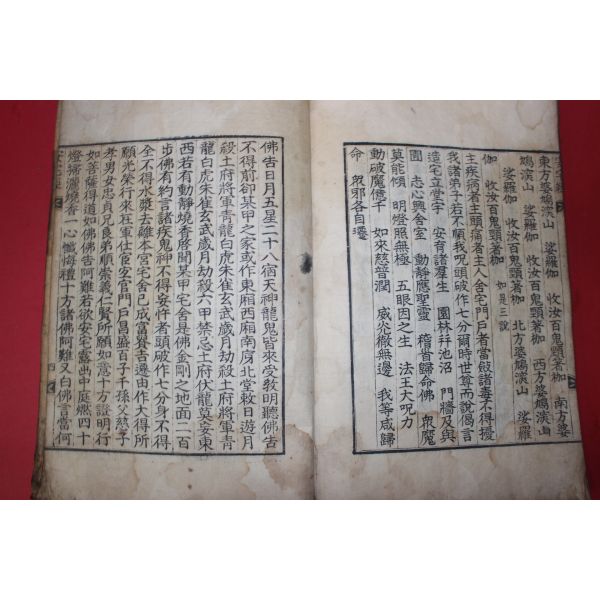 東方婆鳩漠山 娑羅伽 收汝百鬼頸著枷 南方婆
鳩漠山 娑羅伽 收汝百鬼頸著枷 西方婆鳩漠山
娑羅伽 收汝百鬼頸著枷 北方婆鳩漠山 娑羅
伽 收汝百鬼頸著枷 如是三說
主疾病者主頭痛者主人舍宅門戶者當殺諸毒不得擾
我諸弟子若不順我呪頭破作七分爾時世尊而說偈言
造宅立堂宇 安育諸羣生 園林幷池沼 門牆及與
園 志心興舍室 動靜應聖靈 稽首歸命佛 衆魔
莫能傾 明燈照無極 五眼因之生 法王大呪力
動破魔億千 如來慈普潤 威光徹無邊 我等咸歸
命 衆邪各自遷
佛告日月五星二十八宿天神龍鬼皆來受教明聽佛告
不得前却某甲之家或作東廂西廂南庌北堂敕日遊月
殺土府將軍青龍白虎朱雀玄武歲月劫殺土府將軍青
龍白虎朱雀玄武歲月劫殺六甲禁忌土府伏龍莫妄東
西若有動靜燒香啓聞某甲宅舍是佛金剛之地面二百
步佛有約言諸疾鬼神不得妄忤者頭破作七分身不得
全不得水漿去離本宮宅舍已成富貴吉遷由作大得所
願光榮行來在軍仕宦宜官門戶昌盛百子千孫父慈子
孝男女忠貞兄良弟順崇義仁賢所願如意十方證明行
如菩薩得道如佛佛告阿難若欲安宅露出中庭燃四十
燈術灑燒香一心懺悔禮十方諸佛阿難又白佛言當何
四